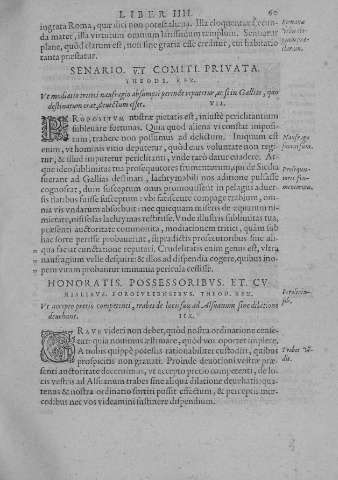 LIBER IIII. 60
ingrata Roma, quæ dici non potest aliena. Illa eloquentiæ fœcun-
da mater, illa virtutum omnium latissimum templum. Sentiatur
plane, quod clarum est, non sine gratia esse creditur, cui habitatio
tanta præstatur.
SENARIO. VT COMITI. PRIVATA.
THEODE. REX.
VII.
PROPOSITVM nostræ pietatis est, iniuste periclitantium
subleuare fortunas. Quia quod aliena vi constat imposi-
tum, trahere non possumus ad delictum. Iniquum est
enim, vt hominis vitio deputetur, quod eius voluntate non regi-
tur, & illud imputetur periclitanti, vnde raro datur euadere. At-
que ideo sublimitas tua prosequutores frumentorum, qui de Sicilia
fuerant ad Gallias destinati, lachrymabili nos aditione pulsasse
cognoscat, dum susceptum onus promouissent in pelagus
flatibus fuisse susceptum: vbi fatiscente compage trabium, om-
nia vis vndarum
miseris, post solas lachrymas restitisse. Vnde illustris sublimitas tua,
præsenti auctoritate commonita, modiationem tritici, quam sub
hac sorte perisse probauerint, supradictis prosecutoribus sine ali-
qua faciat cunctatione reputari. Crudelitatis enim genus est, vltra
naufragium velle desæuire: & illos ad dispendia cogere, quibus ino-
pem vitam probantur immania pericula cessisse.
HONORATIS. POSSESSORIBVS. ET. CV
RIALIBVS. FOROIVLIENSIBVS. THEOD. REX.
Vt accepto pretio competenti, trabes de locis suis ad Alsuanum sine dilatione
deuehant. IIX.
GRAVE videri non debet, quod nostra ordinatione cense-
tur: quia nouimus æstimare, quod vos oportet implere.
A nobis quippe possessis rationabiliter custoditur, quibus
proficiens non grauati. Proinde deuotioni vestræ præ-
senti auctoritate decernimus, vt accepto pretio competenti, de lo-
cis vestris ad Alsuanum trabes sine aliqua dilatione deuehatis: qua-
tenus & nostra ordinatio sortiri possit effectum, & perceptis mer-
cedibus nec vos videamini sustinere dispendium.